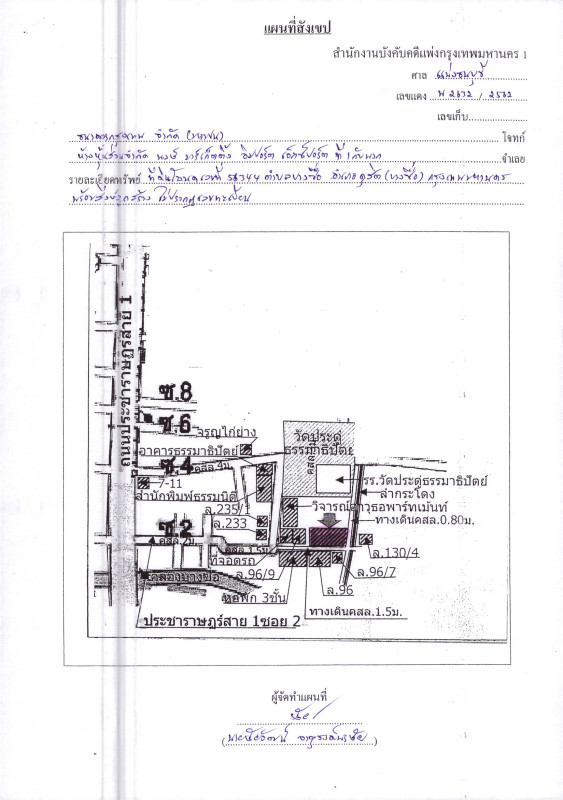 แผนที่สังเขป
สำนักงานบังคับคดีแพ่งกรุงเทพมหานคร 1
ศาล แพ่งธนบุรี
เลขแดง พ 2632 / 2562
เลขเก็บ
ธนาคารกรุงเทพ จำกัด (มหาชน) โจทก์
ห้างหุ้นส่วนจำกัด พงษ์ มาร์เก็ตติ้ง อิมปอร์ต เอ็กซ์ปอร์ต ที่ 1 กับพวก จำเลย
รายละเอียดทรัพย์ ที่ดินโฉนดเลขที่ 58344 ตำบลบางซื่อ อำเภอดุสิต (บางซื่อ) กรุงเทพมหานคร
พร้อมสิ่งปลูกสร้าง ไม่ปรากฏเลขทะเบียน
ถนนประชาราษฎร์สาย 1
ซ.8
ซ.6
จรูญไก่ย่าง
วัดประดู่
ธรรมาธิปัตย์
อาคารธรรมาธิปัตย์
ซ.4
คสล 4ม.
คสล
7-11
รร.วัดประดู่ธรรมาธิปัตย์
สำนักพิมพ์ธรรมนิติ
ลำกระโดง
ล.235/1
วิจารณ์อาวุธอพาร์ทเม้นท์
ล.233
ทางเดินคสล.0.80ม.
ซ.2
คสล 2ม
คสล 1.5ม
ที่จอดรถ
ล.130/4
คลองบางซื่อ
ล.96/9
ล.96/7
ล.96
หอพัก 3ชั้น
ทางเดินคสล.1.5ม.
ประชาราษฎร์สาย 1ซอย 2
ผู้จัดทำแผนที่